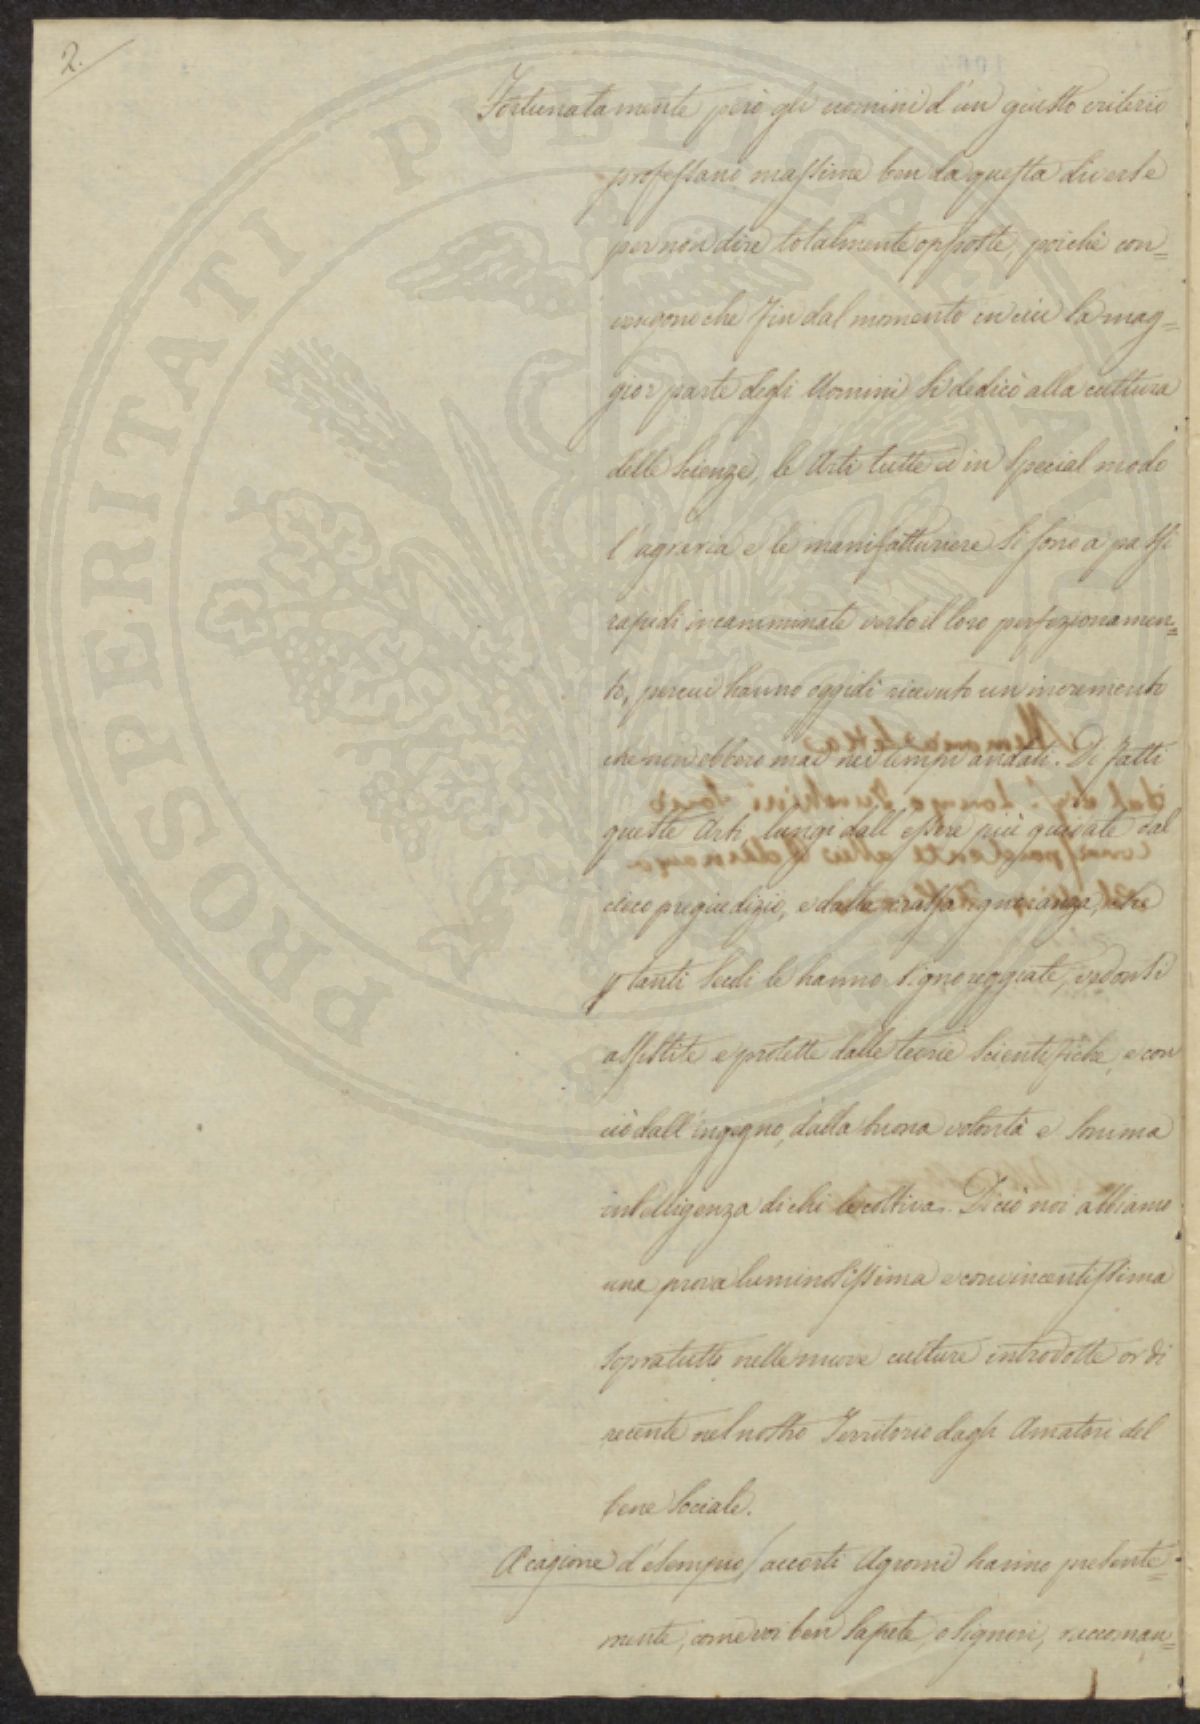 2.
Fortunatamente però gli uomini d'un giusto criterio
professano massime ben da questa diverse
per non dire totalmente opposte, poichè con=
vengono che fin dal momento in cui la mag=
gior parte degli Uomini si dedicò alla cultura
delle Scienze, le Arti tutte e in special modo
l'agraria e le manifatturiere si sono a passi
rapidi incamminate verso il loro perfezionamen=
to, percui hanno oggidì ricevuto un incremento
che non ebbero mai nei tempi andati. Di fatti
queste Arti lungi dall'essere più guidate dal
cieco pregiudizio, e dalla crassa ignoranza, che
p tanti Secoli le hanno signoreggiate, vedonsi
assistite e protette dalle teorie scientifiche, e con
ciò dall'ingegno, dalla buona volontà e somma
intelligenza di chi le coltiva. Di ciò noi abbiamo
una prova luminosissima e convincentissima
sopratutto nelle nuove culture introdotte or di
recente nel nostro Territorio dagli Amatori del
bene Sociale.
A cagione d'esempio accorti Agronomi hanno presente=
mente, come voi ben sapete, o Signori, raccoman=
PROSPERITATI PUBLICAE AUGENDAE